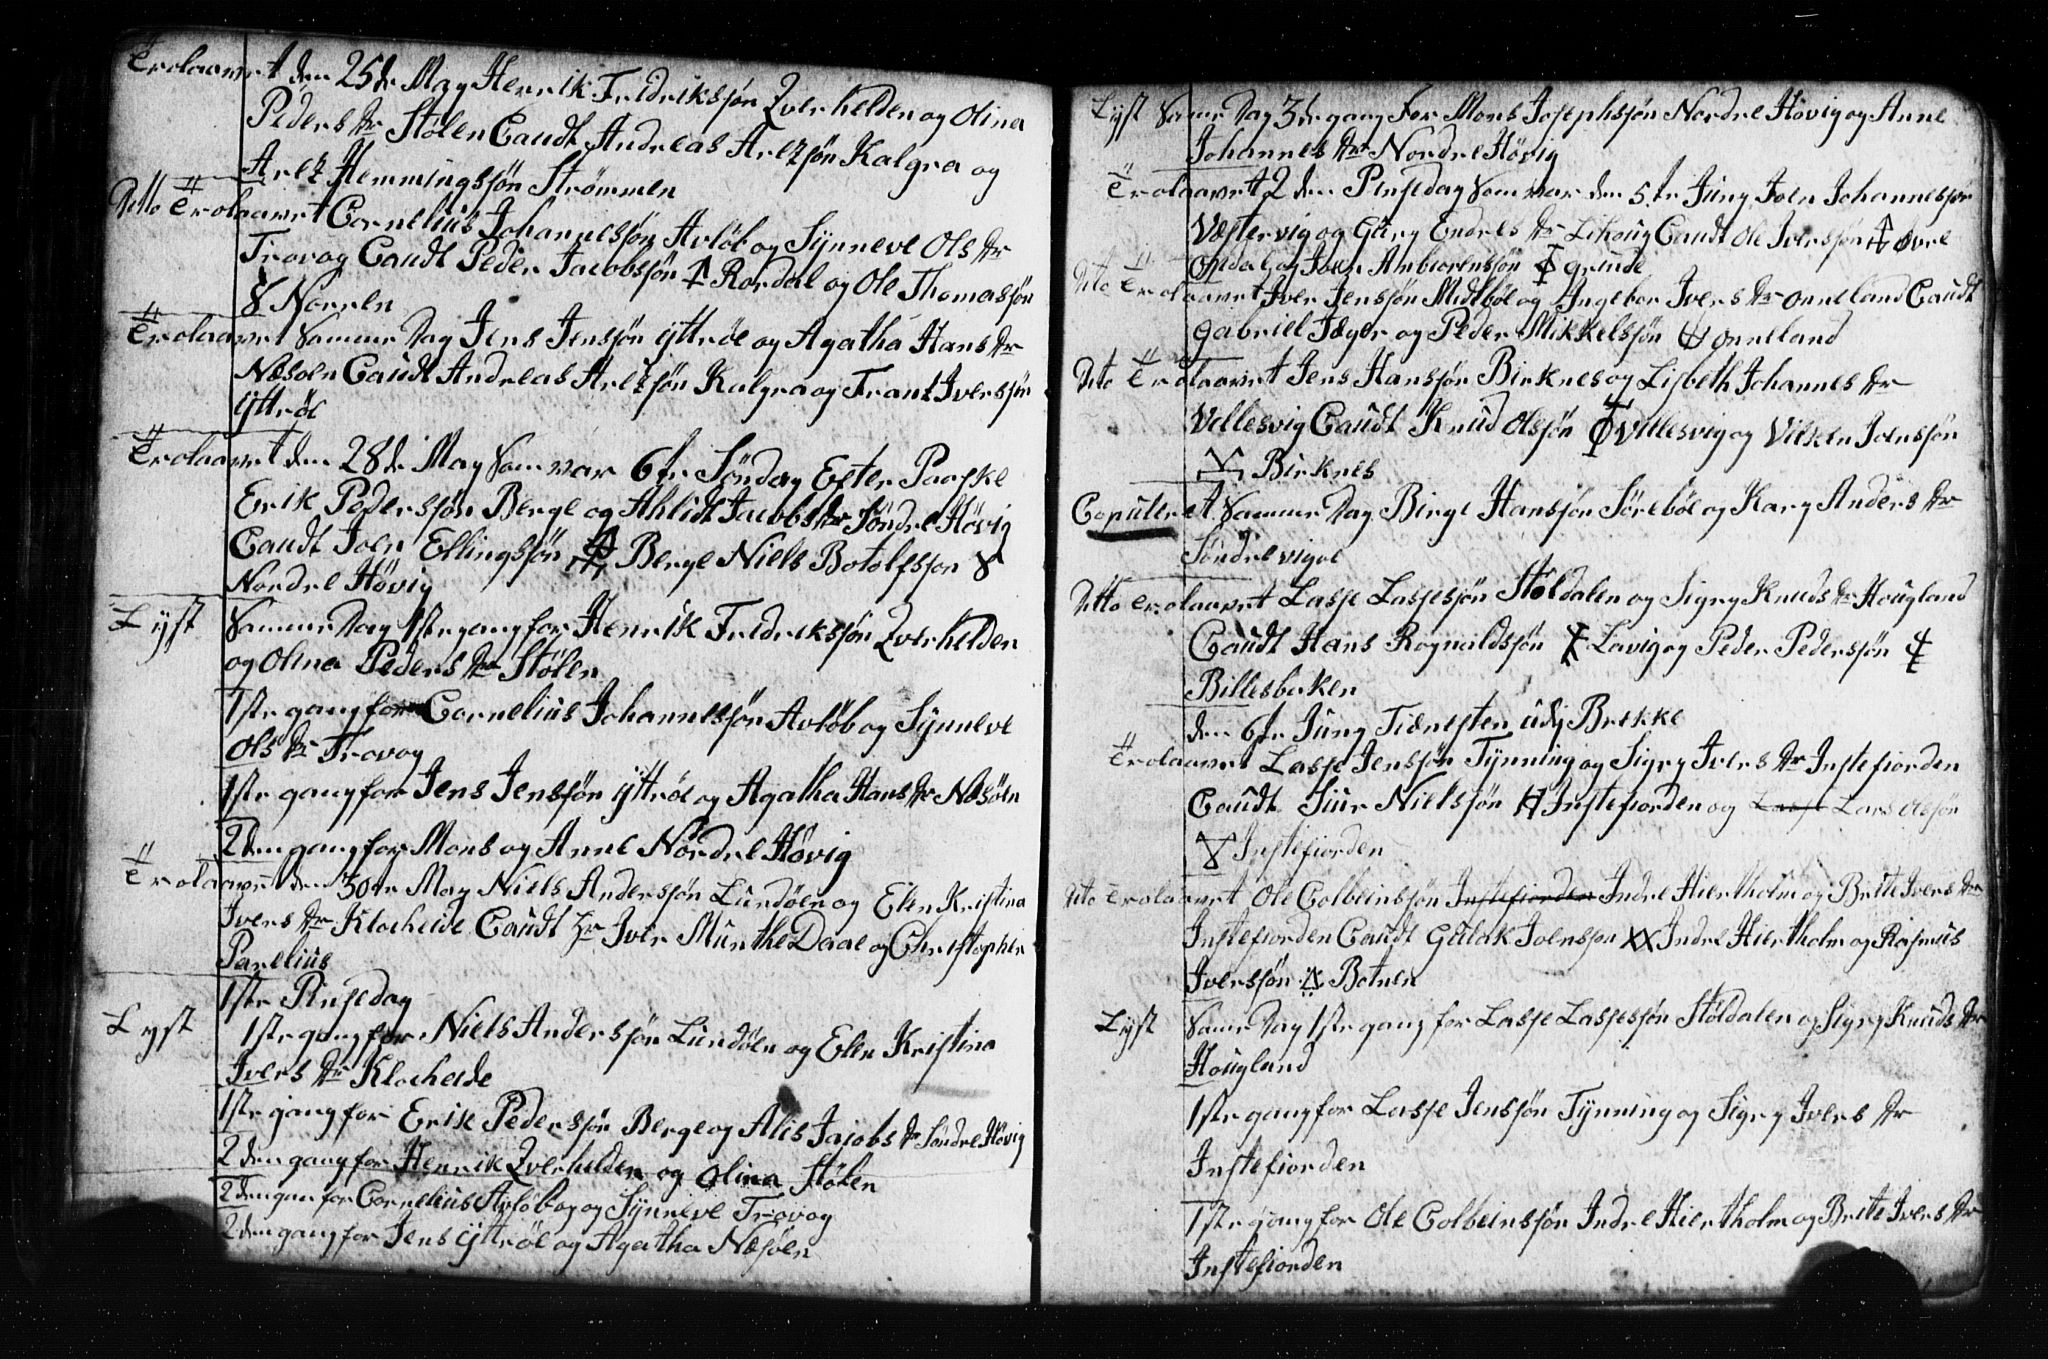 Trolaavet den 25de May Henrik Fridriksøn Zverhelden og Olina
Peders dr Stølen Caudt Andreas Aretzøn Kalgra og
Aretz Hemmingsøn Strømmen
Ditto Trolaavet Cornelius Johannesøn Avløb og Synneve Ols dr
Trovog Caudt Peder Jacobsøn Rordal og Ole Thomasøn
Norren
Trolaavet Samme Dag Jens Jensøn yttrøe og Agatha Hans dr
Næsoen Caudt Andreas Aretsøn Kalgra og Frantz Iversøn
yttrøe
Trolaavet den 28de May Som var 6te Søndag Efter Paaske
Erik Pedersøn Berge og Ahlidt Jacobs dr Søndre Høvig
Caudt Joen Ellingsøn Berge Niels Botolfsøn
Nordre Høvig
Lyst Samme Dag 1ste gang for Henrik Fridriksøn Zverhelden
og Olina Peders dr Stølen
1ste gang for Cornelius Johannesøn Avløb og Synneve
Ols dr Trovog
1ste gang for Jens Jensøn yttrøe og Agatha Hans dr Næsöen
2den gang for Mons og Anne Nordre Høvig
Trolaavet den 30te May Niels Andersøn Lundøen og Elen Kristina
Ivers dr Klocheide Caudt Hr Iver Munthe Daae og Christopher
Parelius
1ste Pinsedag
Lyst 1ste gang for Niels Andersøn Lundöen og Elen Kristina
Ivers dr Klocheide
1ste gang for Erik Pedersøn Berge og Alis Jacobs dr Søndre Høvig
2den gang for Henrik Zverhelden og Olina Stølen
2den gan for Cornelius Avløb og Synneve Trovog
2den gang for Jens yttrøe og Agatha Næsøen
Lyst Same Dag 3de gang For Mons Josephsøn Nordre Høvig og Anne
Johannes dr Nordre Høvig
Trolaavet 2den Pinsedag Som var den 5te Juny Joen Johannesøn
Væstervig og Gury Endres dr Lihoug Caudt Ole Iversøn Øvre
Opdal og Joen Ambiorensøn grinde
Dito Trolaavet Iver Jensøn Midtbøe og Ingebor Ivers dr onneland Caudt
gabriel Jæger og Peder Mikkelsøn onneland
Dito Trolaavet Jens Hansøn Birknes og Lisbeth Johannes dr
Vellesvig Caudt Knud Olsøn Vellesvig og Villem Joensøn
Birknes
Copuleret Samme Dag Birge Hansøn Sørebøe og Kary Anders dr
Søndre vigoe
Ditto Trolaavet Lasse Lassesøn Støldalen og Sigry Knuds dr Hougland
Caudt Hans Rognaldsøn Lavig og Peder Pedersøn
Billesbaken
den 6te Juny Tienesten udj Brekke
Trolaavet Lasse Jensøn Tynning og Sigry Ivers dr Instefiorden
Caudt Siur Nielsøn Instefiorden og Lasse Lars Olsøn
Instefiorden
Dito Trolaavet Ole Colbeinsøn Instefiorden Indre Hiertholm og Brite Ivers dr
Instefiorden Caudt Gulak Joensøn Indre Hiertholm og Rasmus
Iversøn Botnen
Lyst Same Dag 1ste gang for Lasse Lassesøn Støldalen og Sigry Knuds dr
Hougland
1ste gang for Lasse Jensøn Tynning og Sigry Ivers dr
Instefiorden
1ste gang for Ole Colbeinsøn Indre Hiertholm og Brite Ivers dr
Instefiorden